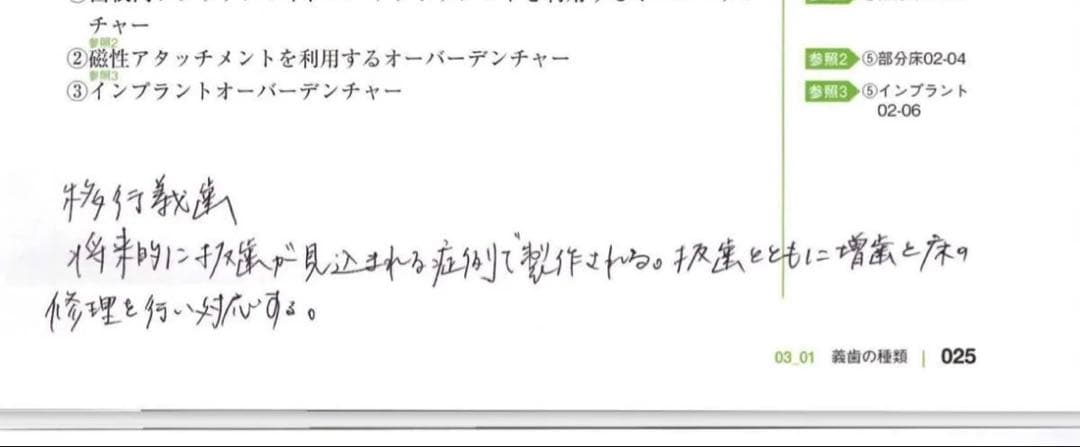 チャー
参照2
②磁性アタッチメントを利用するオーバーデンチャー
参照2 ⑤部分床02-04
参照3
③インプラントオーバーデンチャー
参照3 ⑤インプラント
02-06
移行義歯
将来的に抜歯が見込まれる症例で製作される。抜歯とともに増歯と床の
修理を行い対応する。
03_01 義歯の種類 | 025